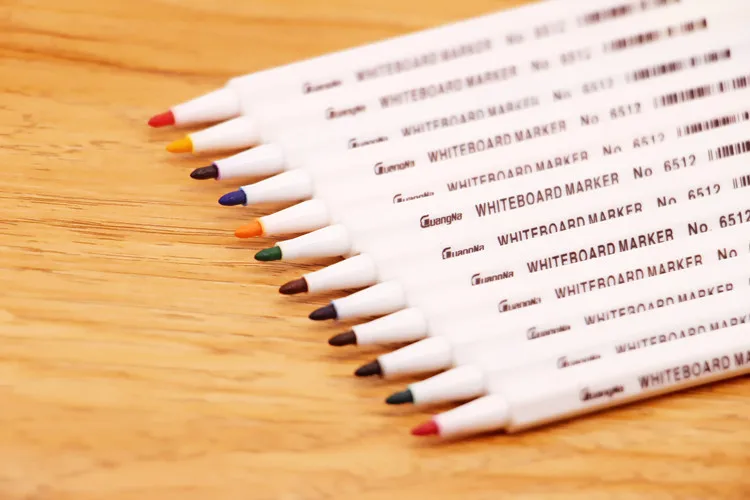 GuangNa WHITEBOARD MARKER No. 6512
GuangNa WHITEBOARD MARKER No. 6512
GuangNa WHITEBOARD MARKER No. 6512
GuangNa WHITEBOARD MARKER No. 6512
GuangNa WHITEBOARD MARKER No. 6512
GuangNa WHITEBOARD MARKER No. 6512
GuangNa WHITEBOARD MARKER No. 6512
GuangNa WHITEBOARD MARKER No. 6512
GuangNa WHITEBOARD MARKER No
GuangNa WHITEBOARD MARKER
GuangNa WHITEBOARD MARKER
GuangNa WHITEBOARD MA